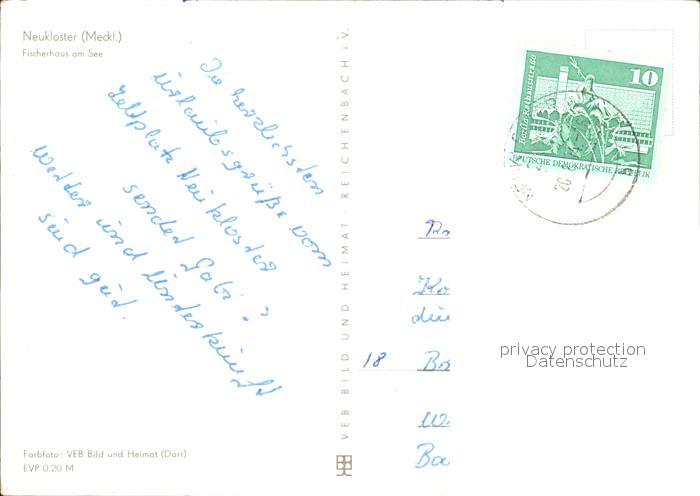 Neukloster (Meckl.)
Fischerhaus am See
Die herzlichsten
Urlaubsgrüße vom
Zeltplatz Neukloster
sendet Gabi
Wetter und Unterkunft
sind gut.
Farbfoto: VEB Bild und Heimat (Darr)
EVP 0,20 M
VEB BILD UND HEIMAT · REICHENBACH i. V.
10
Berlin, Rathausstraße
DEUTSCHE DEMOKRATISCHE REPUBLIK
20
18
privacy protection
Datenschutz